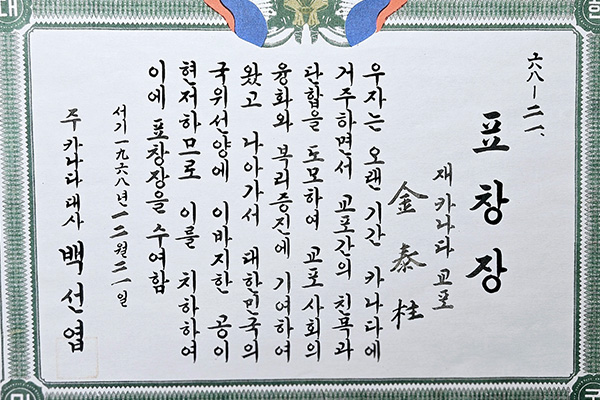 六八—二一、
표창장
재 카나다 교포
金泰柱
우자는 오랜 기간 카나다에
거주하면서 교포간의 친목과
단합을 도모하여 교포사회의
융화와 복리증진에 기여하여
왔고 나아가서 대한민국의
국위선양에 이바지한 공이
현저하므로 이를 치하하여
이에 표창장을 수여함
서기一九六八년一二월三一일
주 카나다대사 백선엽
대
한
민
국